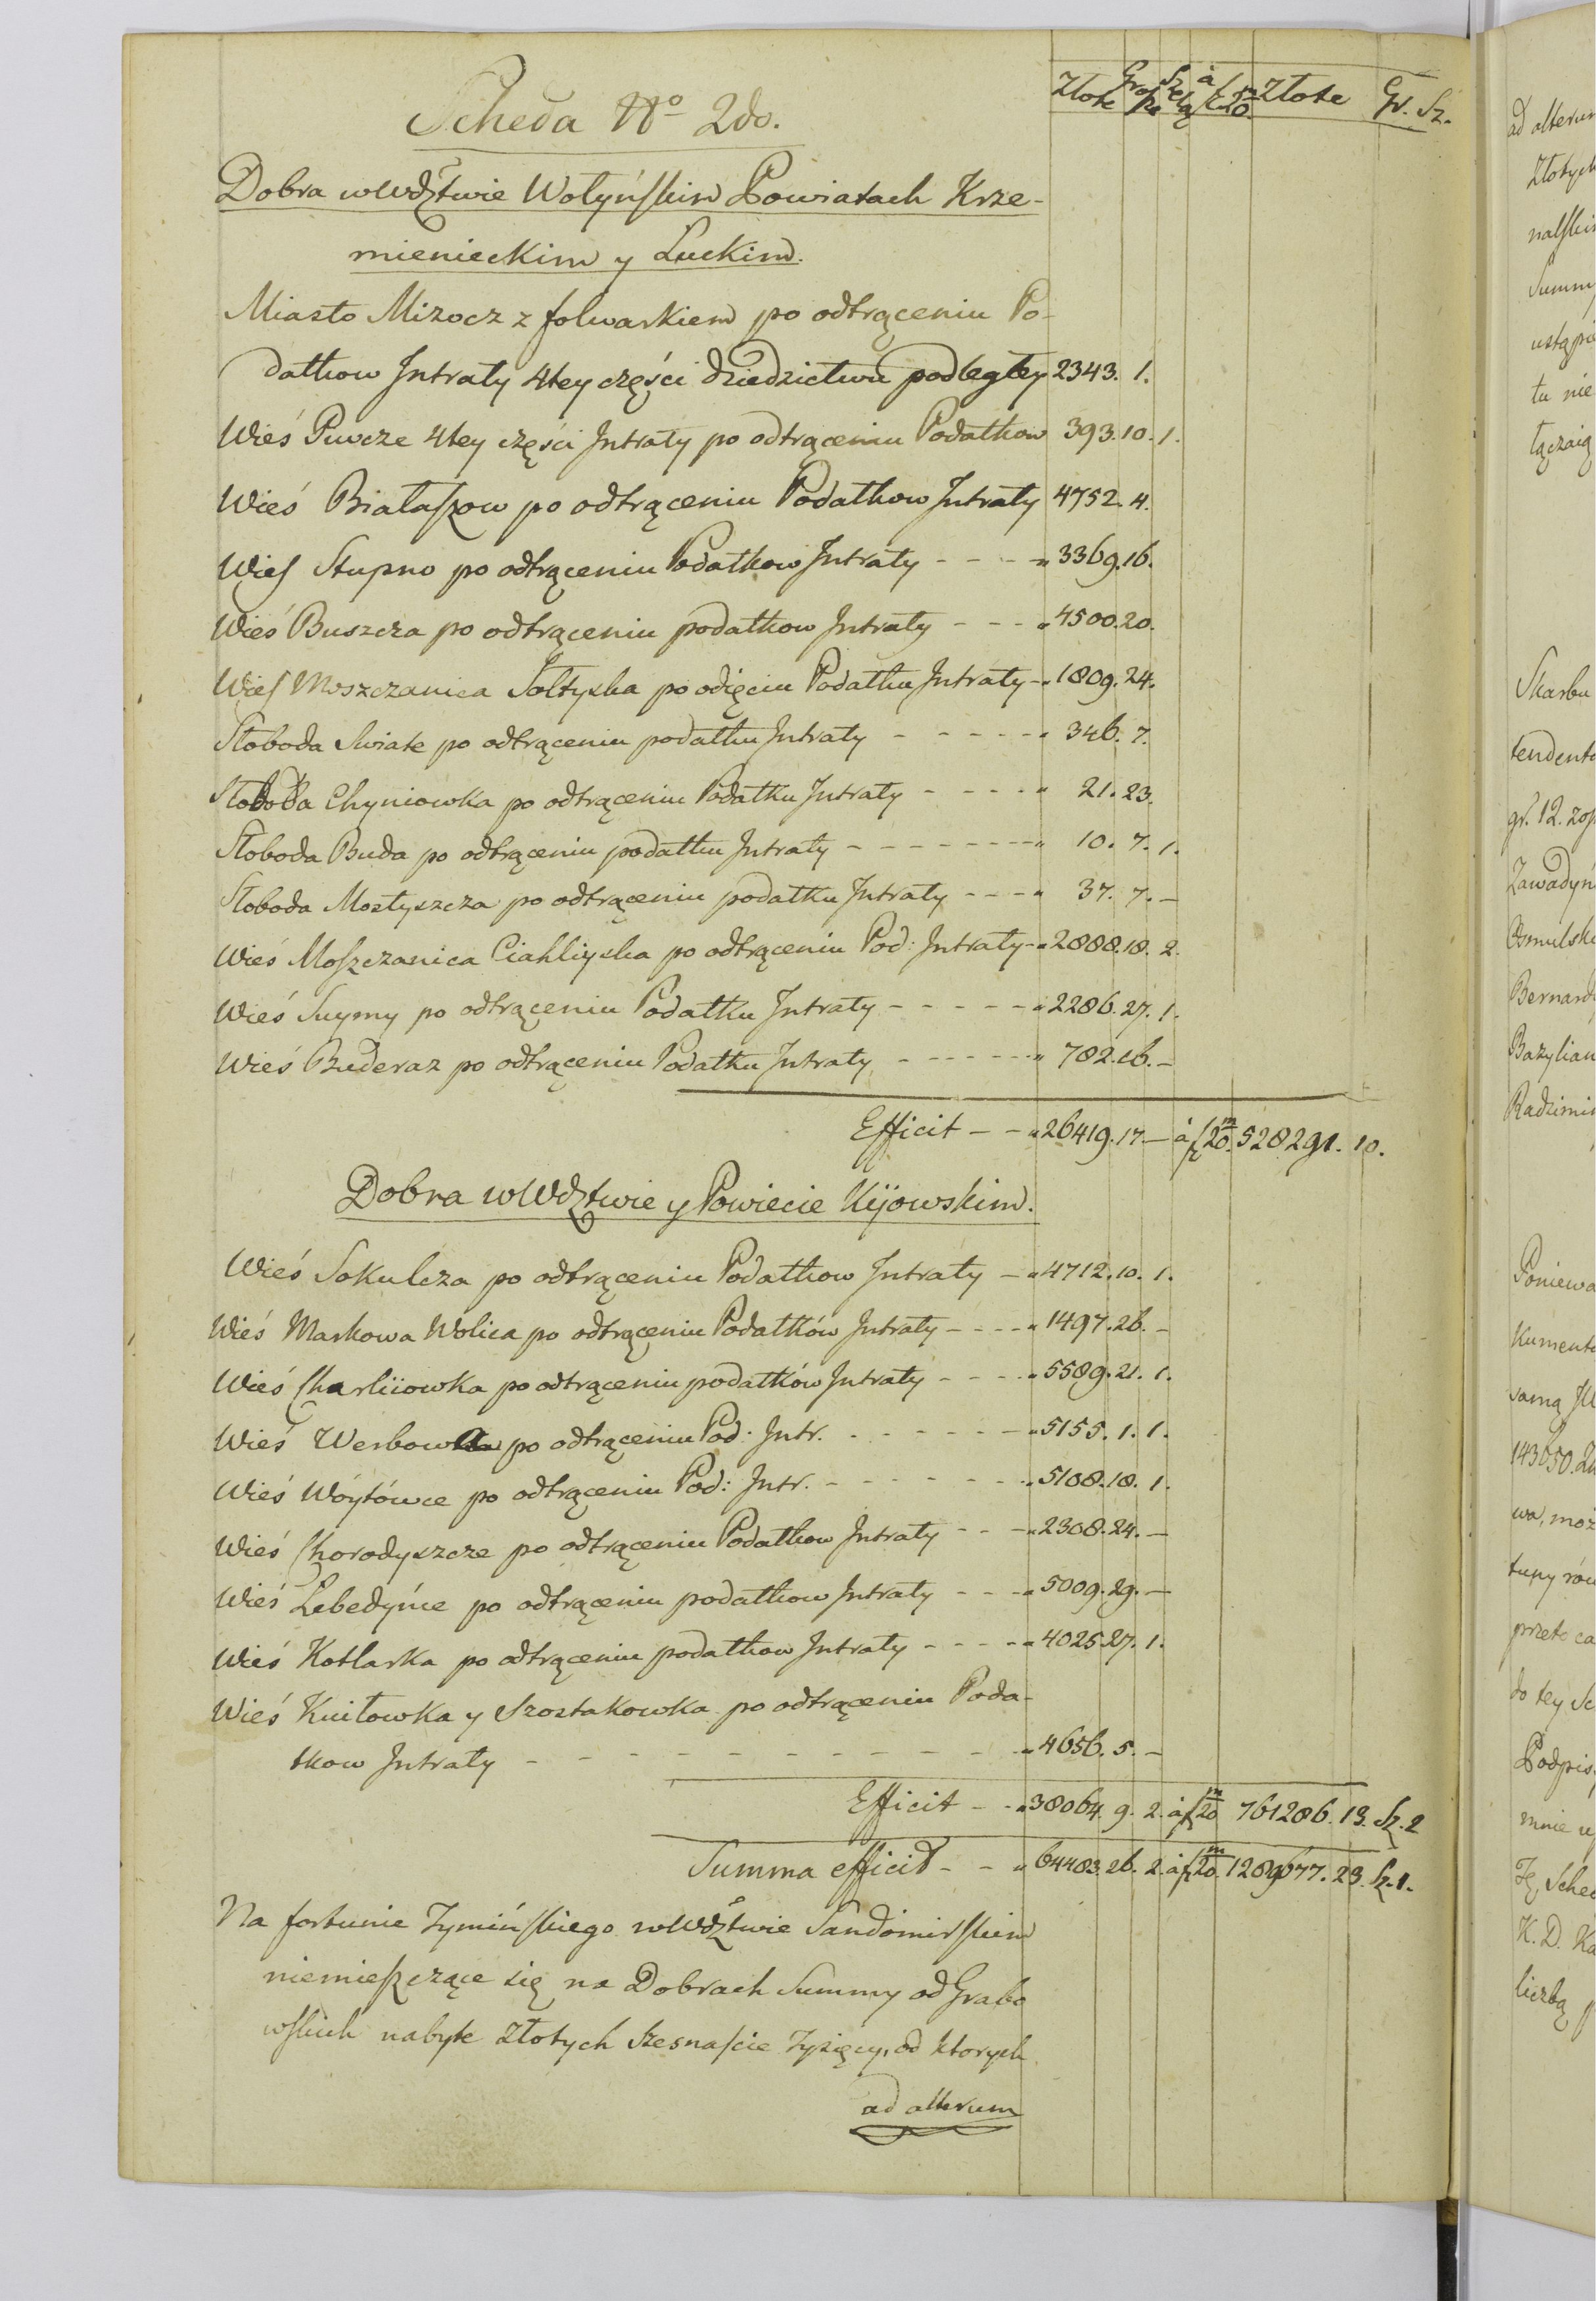 Złote Grosze Szelą à fl 20 Złote Gr. Sz.
Scheda No 2do.
Dobra w Wdztwie Wołyńskim Powiatach Krze-
mienieckim y Łuckim.
Miasto Mizocz z folwarkiem po odtrąceniu Po-
datkow Intraty 4tey części dziedzictwu podległey 2343. 1.
Wieś Piwcze 4tey części Intraty po odtrąceniu Podatkow 393. 10. 1.
Wieś Białaszow po odtrąceniu Podatkow Intraty 4752. 4.
Wieś Stupno po odtrąceniu Podatkow Intraty - - - " 3369. 16.
Wieś Buszcza po odtrąceniu podatkow Intraty - - - " 4500. 20.
Wieś Moszczanica Sołtyska po odięciu Podatku Intraty - " 1809. 24.
Słoboda Swiate po odtrąceniu podatku Intraty - - - - - " 346. 7.
Słoboda Chyniowka po odtrąceniu Podatku Intraty - - - - " 21. 23.
Słoboda Buda po odtrąceniu podatku Intraty - - - - - - - " 10. 7. 1.
Słoboda Mostyszcza po odtrąceniu podatku Intraty - - - " 37. 7. -
Wieś Moszczanica Ciahliyska po odtrąceniu Pod: Intraty - " 2888. 18. 2.
Wieś Suymy po odtrąceniu Podatku Intraty - - - - - " 2286. 27. 1.
Wieś Buderaz po odtrąceniu Podatku Intraty - - - - - - " 782. 16. -
Efficit - - " 26419. 17 - à fl 20 m. 528291. 10.
Dobra w Wdztwie y Powiecie Kijowskim.
Wieś Sokulcza po odtrąceniu Podatkow Intraty - " 4712. 10. 1.
Wieś Markowa Wolica po odtrąceniu Podatków Intraty - - - - " 1497. 26. -
Wieś Charliiowka po odtrąceniu podatków Intraty - - - - " 5589. 21. 1.
Wieś Werbowka po odtrąceniu Pod: Intr. - - - - - - " 5155. 1. 1.
Wieś Wóytówce po odtrąceniu Pod: Intr. - - - - - - - " 5108. 18. 1.
Wieś Chorodyszcze po odtrąceniu Podatkow Intraty - - - " 2308. 24. -
Wieś Lebedyńce po odtrąceniu podatkow Intraty - - - " 5009. 29. -
Wieś Kotlarka po odtrąceniu podatkow Intraty - - - - " 4025. 27. 1.
Wieś Kniłowka y Szostakowka po odtrąceniu Poda-
tkow Intraty - - - - - - - - - - " 4656. 5. -
Efficit - - " 38064. 9. 2. à fl 20 m 761286. 13. Sz. 2
Summa efficit - - " 64483. 26. 2. à fl 20 m. 1289677. 23. Sz. 1.
Na fortunie Zymińskiego w Wdztwie Sandomirskim
niemieszczące się na Dobrach Summy od Grabo
wskich nabyte Złotych szesnaście Tysięcy, od ktorych
ad alterum
ad alterum
Złotych
nalski
Summy
ustąpie
tu nie
łączaią
Skarbu
tendento
gr. 12. zop
Zawadyń
Osmulsk
Bernard
Bazylian
Radzimi
Poniewa
kumento
samą
143050.
wa, moż
tuny rów
przeto ca
do tey Sc
Podpis
mnie u
Tę Sched
K. D. Ka
liczbą p